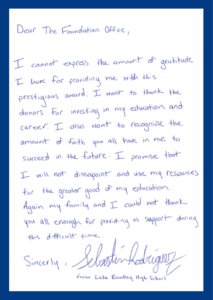 Dear The Foundation Office,
I cannot express the amount of gratitude
I have for providing me with this
prestigious award. I want to thank the
donors for investing in my education and
career. I also want to recognize the
amount of faith you all have in me to
succeed in the future. I promise that
I will not dissapoint and use my resources
for the greater good of my education.
Again my family and I could not thank
you all enough for providing us support during
this difficult time.
Sincerely, Sebastian Rodriguez
High School